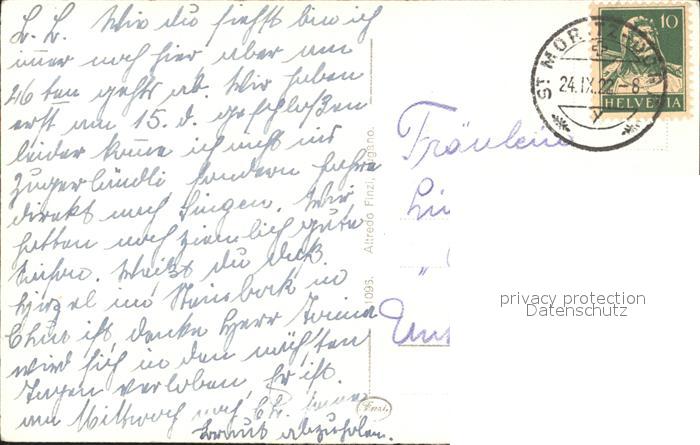 L. L. Wie du siehst bin ich
immer noch hier aber am
26ten gehts ab. Wir haben
erst am 15. d. geschloßen
leider komme ich nicht ins
Zugerländli sondern fahre
direkt nach Singen. Wir
hatten noch ziemlich gute
Saison. Weißt du daß
Hirzel im Steinbock in
Chur ist, denke Herr
wird sich in den nächsten
Tagen verloben, Er ist
am Mittwoch nach
Braut abzuholen.
Alfredo Finzi, Lugano.
1096.
Finzi.
ST. MORITZ-DORF
24.IX.22-8
10
HELVETIA
Fräulein
privacy protection
Datenschutz